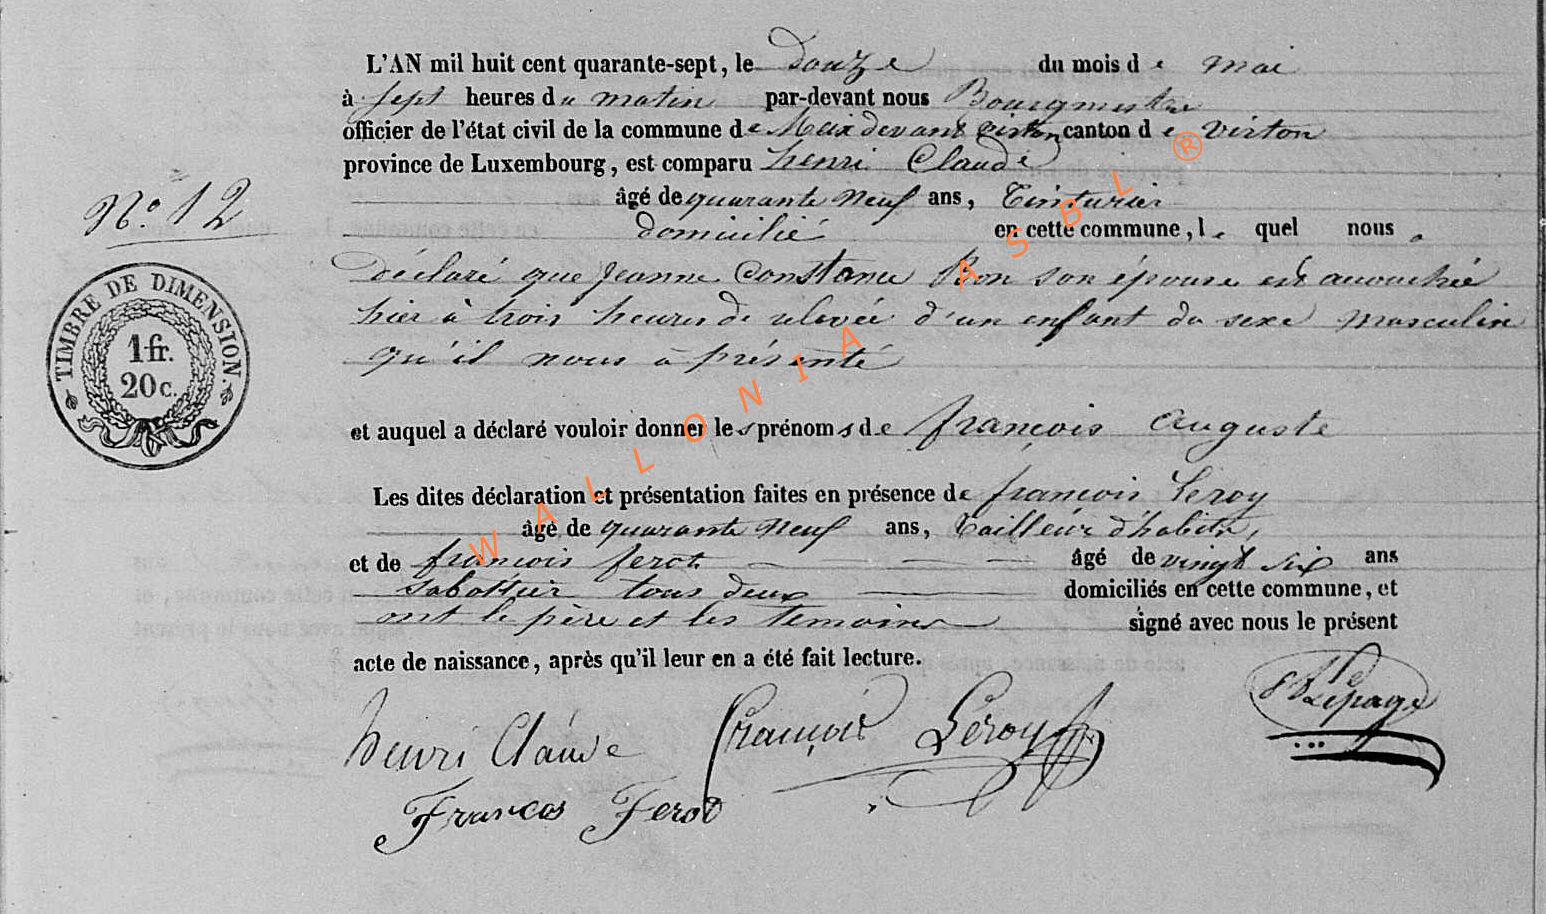 L'AN mil huit cent quarante-sept, le Douze du mois de mai
à sept heures du matin par-devant nous Bourgmestre
officier de l'état civil de la commune de Meix devant virton canton de virton
province de Luxembourg, est comparu henri Claude
N.º 12
âgé de quarante neuf ans, Teinturier
domicilié en cette commune, le quel nous a
déclaré que Jeanne Constance son épouse est accouchée
hier à trois heures de relevée d'un enfant du sexe masculin
qu'il nous a présenté
TIMBRE DE DIMENSION.
1 fr.
20 c.
et auquel a déclaré vouloir donner les prénoms de françois auguste
Les dites déclaration et présentation faites en présence de françois Leroy
âgé de quarante neuf ans, Tailleur d'habits,
et de francois ferot âgé de vingt six ans
sabottier tous deux domiciliés en cette commune, et
ont le père et les temoins signé avec nous le présent
acte de naissance, après qu'il leur en a été fait lecture.
Lepage
henri Claude françois Leroy
Francos Ferot
WALLONIA ASBL ®